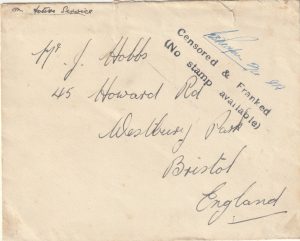 on Active Service
Censored & Franked
(No stamp available)
Mr. J. Hobbs
45 Howard Rd
Westbury Park
Bristol
England